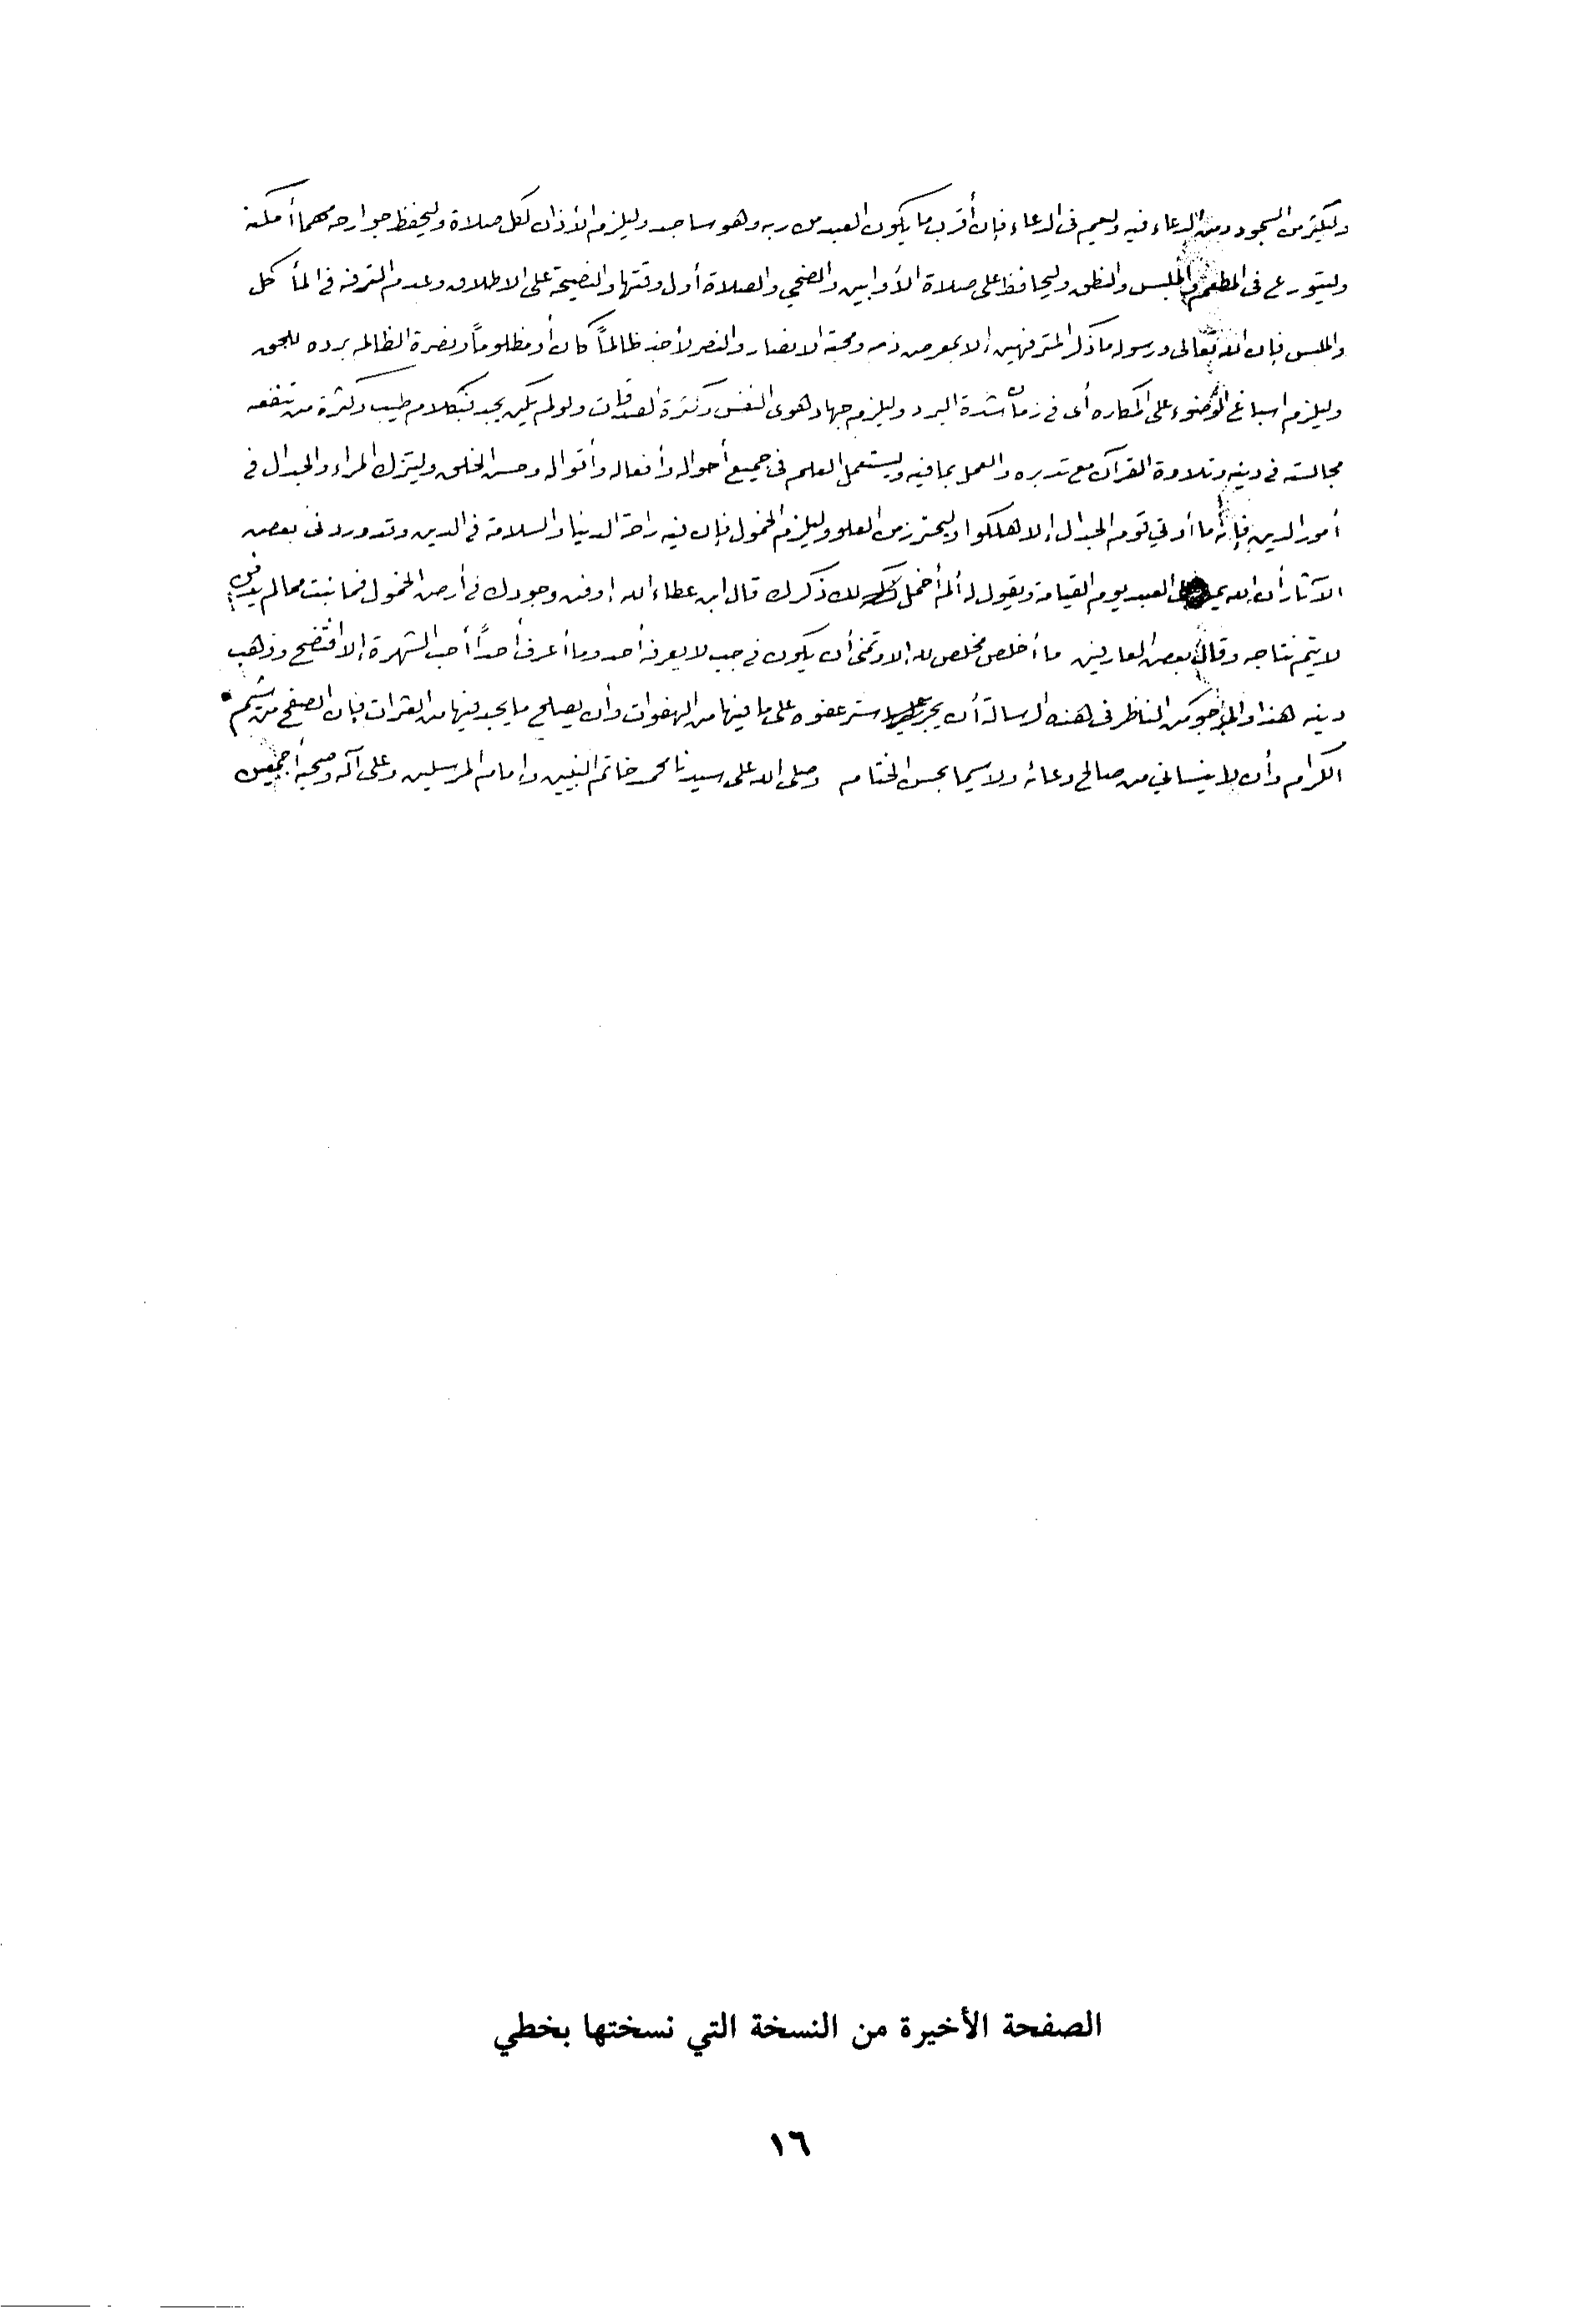 وليكثر من السجود ومن الدعاء فيه وليعم في الدعاء فإن أقرب ما يكون العبد من ربه وهو ساجد وليلزم الأذان لكل صلاة وليحفظ جوارحه مهما أمكنه
وليتورع في المطعم والملبس والنطق وليحافظ على صلاة الأوابين والضحى والصلاة أول وقتها والنصيحة على الاطلاق وعدم الترفه في المأكل
والملبس فإن الله تعالى ورسوله ما ذكر المترفهين إلا بمعرض ذم ومحبة الانصار والنصر لأخيه ظالماً كان أو مظلوماً ونصرة الظالم برده للحق
وليلزم اسباغ الوضوء على المكاره أى في زمان شدة البرد وليلزم جهاد هوى النفس وكثرة الصدقات ولو لم يكن يجد فبكلام طيب وكثرة من تنفعه
مجالسته في دينه وتلاوة القرآن مع تدبره والعمل بما فيه وليستعمل العلم في جميع أحواله وأفعاله وأقواله وحسن الخلق وليترك المراء والجدال في
أمور الدين فإنه ما أوتي قوم الجدال إلا هلكوا وليحترز من العلو وليلزم الخمول فإن فيه راحة الدنيا والسلامة في الدين وقد ورد في بعض
الآثار أن الله العبد يوم القيامة ويقول له ألم أخمل لك ذكرك قال ابن عطاء الله إدفن وجودك في أرض الخمول فما نبت مما لم يدفن
لا يتم نتاجه وقال بعض العارفين ما أخلص مخلص لله إلا وتمنى أن يكون في جب لا يعرفه أحد وما أعرف أحداً أحب الشهرة إلا افتضح وذهب
دينه هذا والمرجو من الناظر في هذه الرسالة أن يجر عليها ستر عفوه على ما فيها من الهفوات وأن يصلح ما يجد فيها من العثرات فإن الصفح من شيم
الكرام وأن لا ينساني من صالح دعائه ولا سيما بحسن الختام وصلى الله على سيدنا محمد خاتم النبيين وإمام المرسلين وعلى آله وصحبه أجمعين
الصفحة الأخيرة من النسخة التي نسختها بخطي
١٦